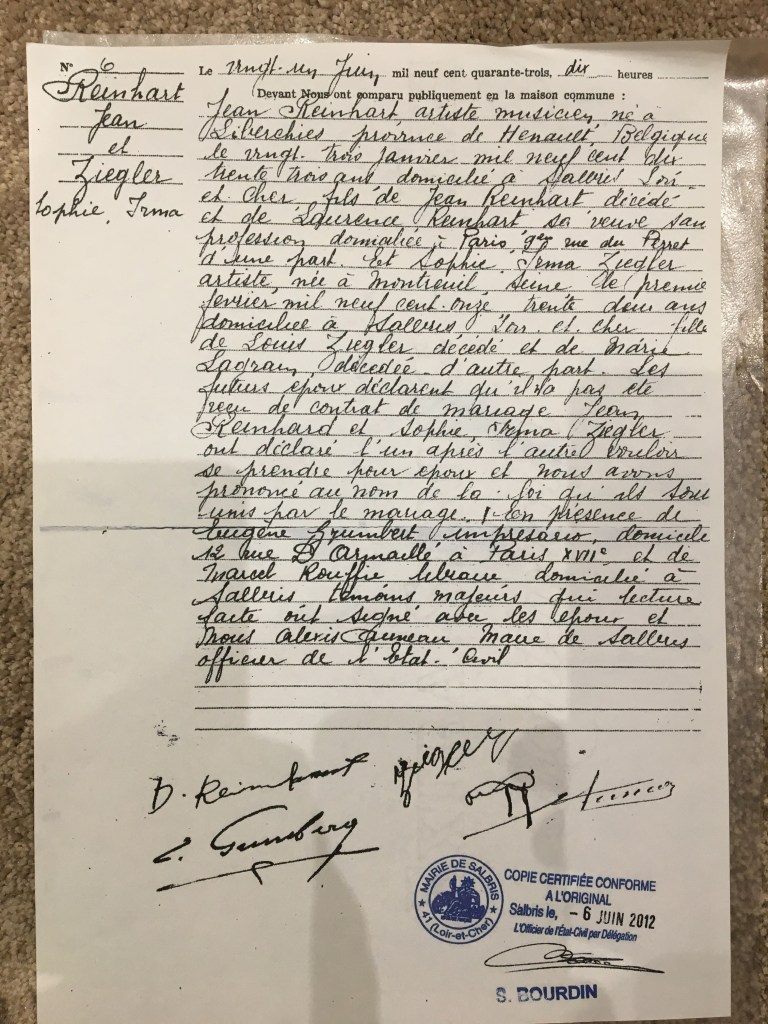 N° 6
Reinhart
Jean
et
Ziegler
Sophie, Irma
Le vingt-un Juin mil neuf cent quarante-trois, dix heures
Devant Nous ont comparu publiquement en la maison commune :
Jean Reinhart artiste musicien, né à
Liberchies province de Henault, Belgique
le vingt-trois janvier mil neuf cent dix
trente trois ans domicilié à Salbris Loir
et Cher, fils de Jean Reinhart décédé
et de Laurence Reinhart sa veuve san
profession domiciliée à Paris rue du
d'une part. Et Sophie, Irma Ziegler
artiste, née à Montreuil, Seine le premier
février mil neuf cent onze trente deux ans
domiciliée à Salbris Loir et Cher fille
de Louis Ziegler décédé et de Marie
Lagrain, décédée d'autre part. Les
futurs époux déclarent qu'il n'a pas été
reçu de contrat de mariage Jean
Reinhard et Sophie, Irma Ziegler
ont déclaré l'un après l'autre vouloir
se prendre pour époux et nous avons
prononcé au nom de la loi qu'ils sont
unis par le mariage. En présence de
Eugène Grumbert impresario, domicilié
12 rue D'Armaillé à Paris XVIIe et de
Marcel Rouffie libraire domicilié à
Salbris témoins majeurs qui lecture
faite ont signé avec les époux et
Nous Alexis Auneau Maire de Salbris
officier de l'Etat-Civil
Ziegler
D. Reinhardt
E. Grumberg
MAIRIE DE SALBRIS
41 (Loir-et-Cher)
COPIE CERTIFIÉE CONFORME
A L'ORIGINAL
Salbris le, - 6 JUIN 2012
L'Officier de l'État-Civil par Délégation
S. BOURDIN